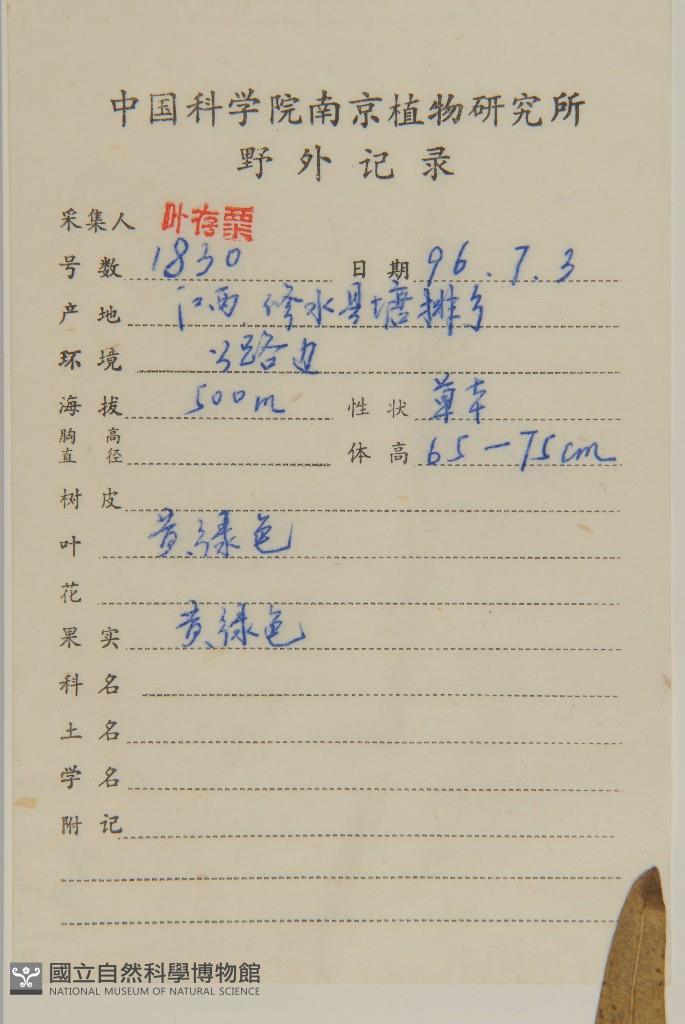 中国科学院南京植物研究所
野外记录
采集人 叶存粟
号数 1830 日期 96.7.3
产地 江西, 修水县塘排乡
环境 路边
海拔 500m 性状 草本
胸高直径 体高 65-75cm
树皮
叶 黄绿色
花
果实 黄绿色
科名
土名
学名
附记
國立自然科學博物館
NATIONAL MUSEUM OF NATURAL SCIENCE